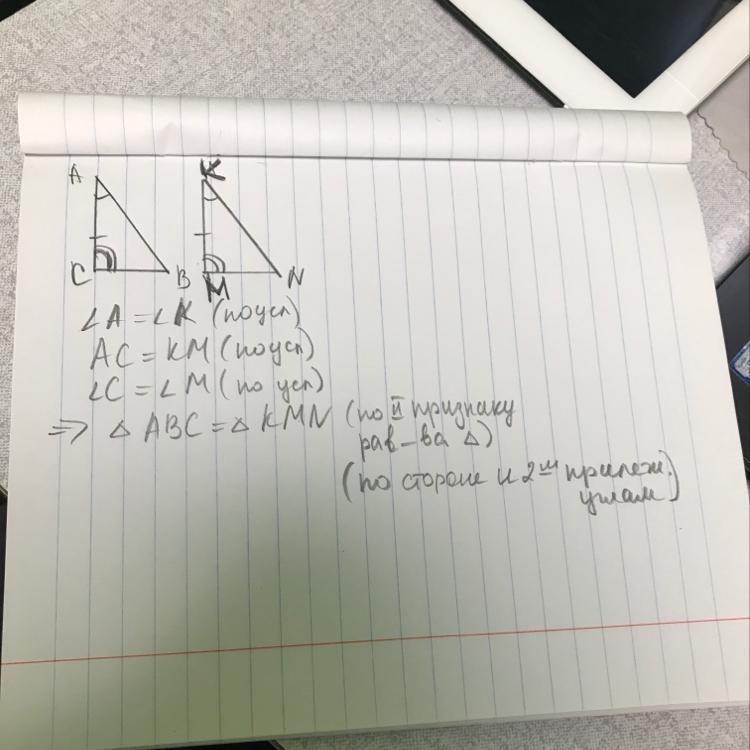 A K
C B M N
∠A = ∠K (по усл)
AC = KM (по усл)
∠C = ∠M (по усл)
=> △ ABC = △ KMN (по II признаку
рав-ва △)
(по стороне и 2ум прилеж.
углам)